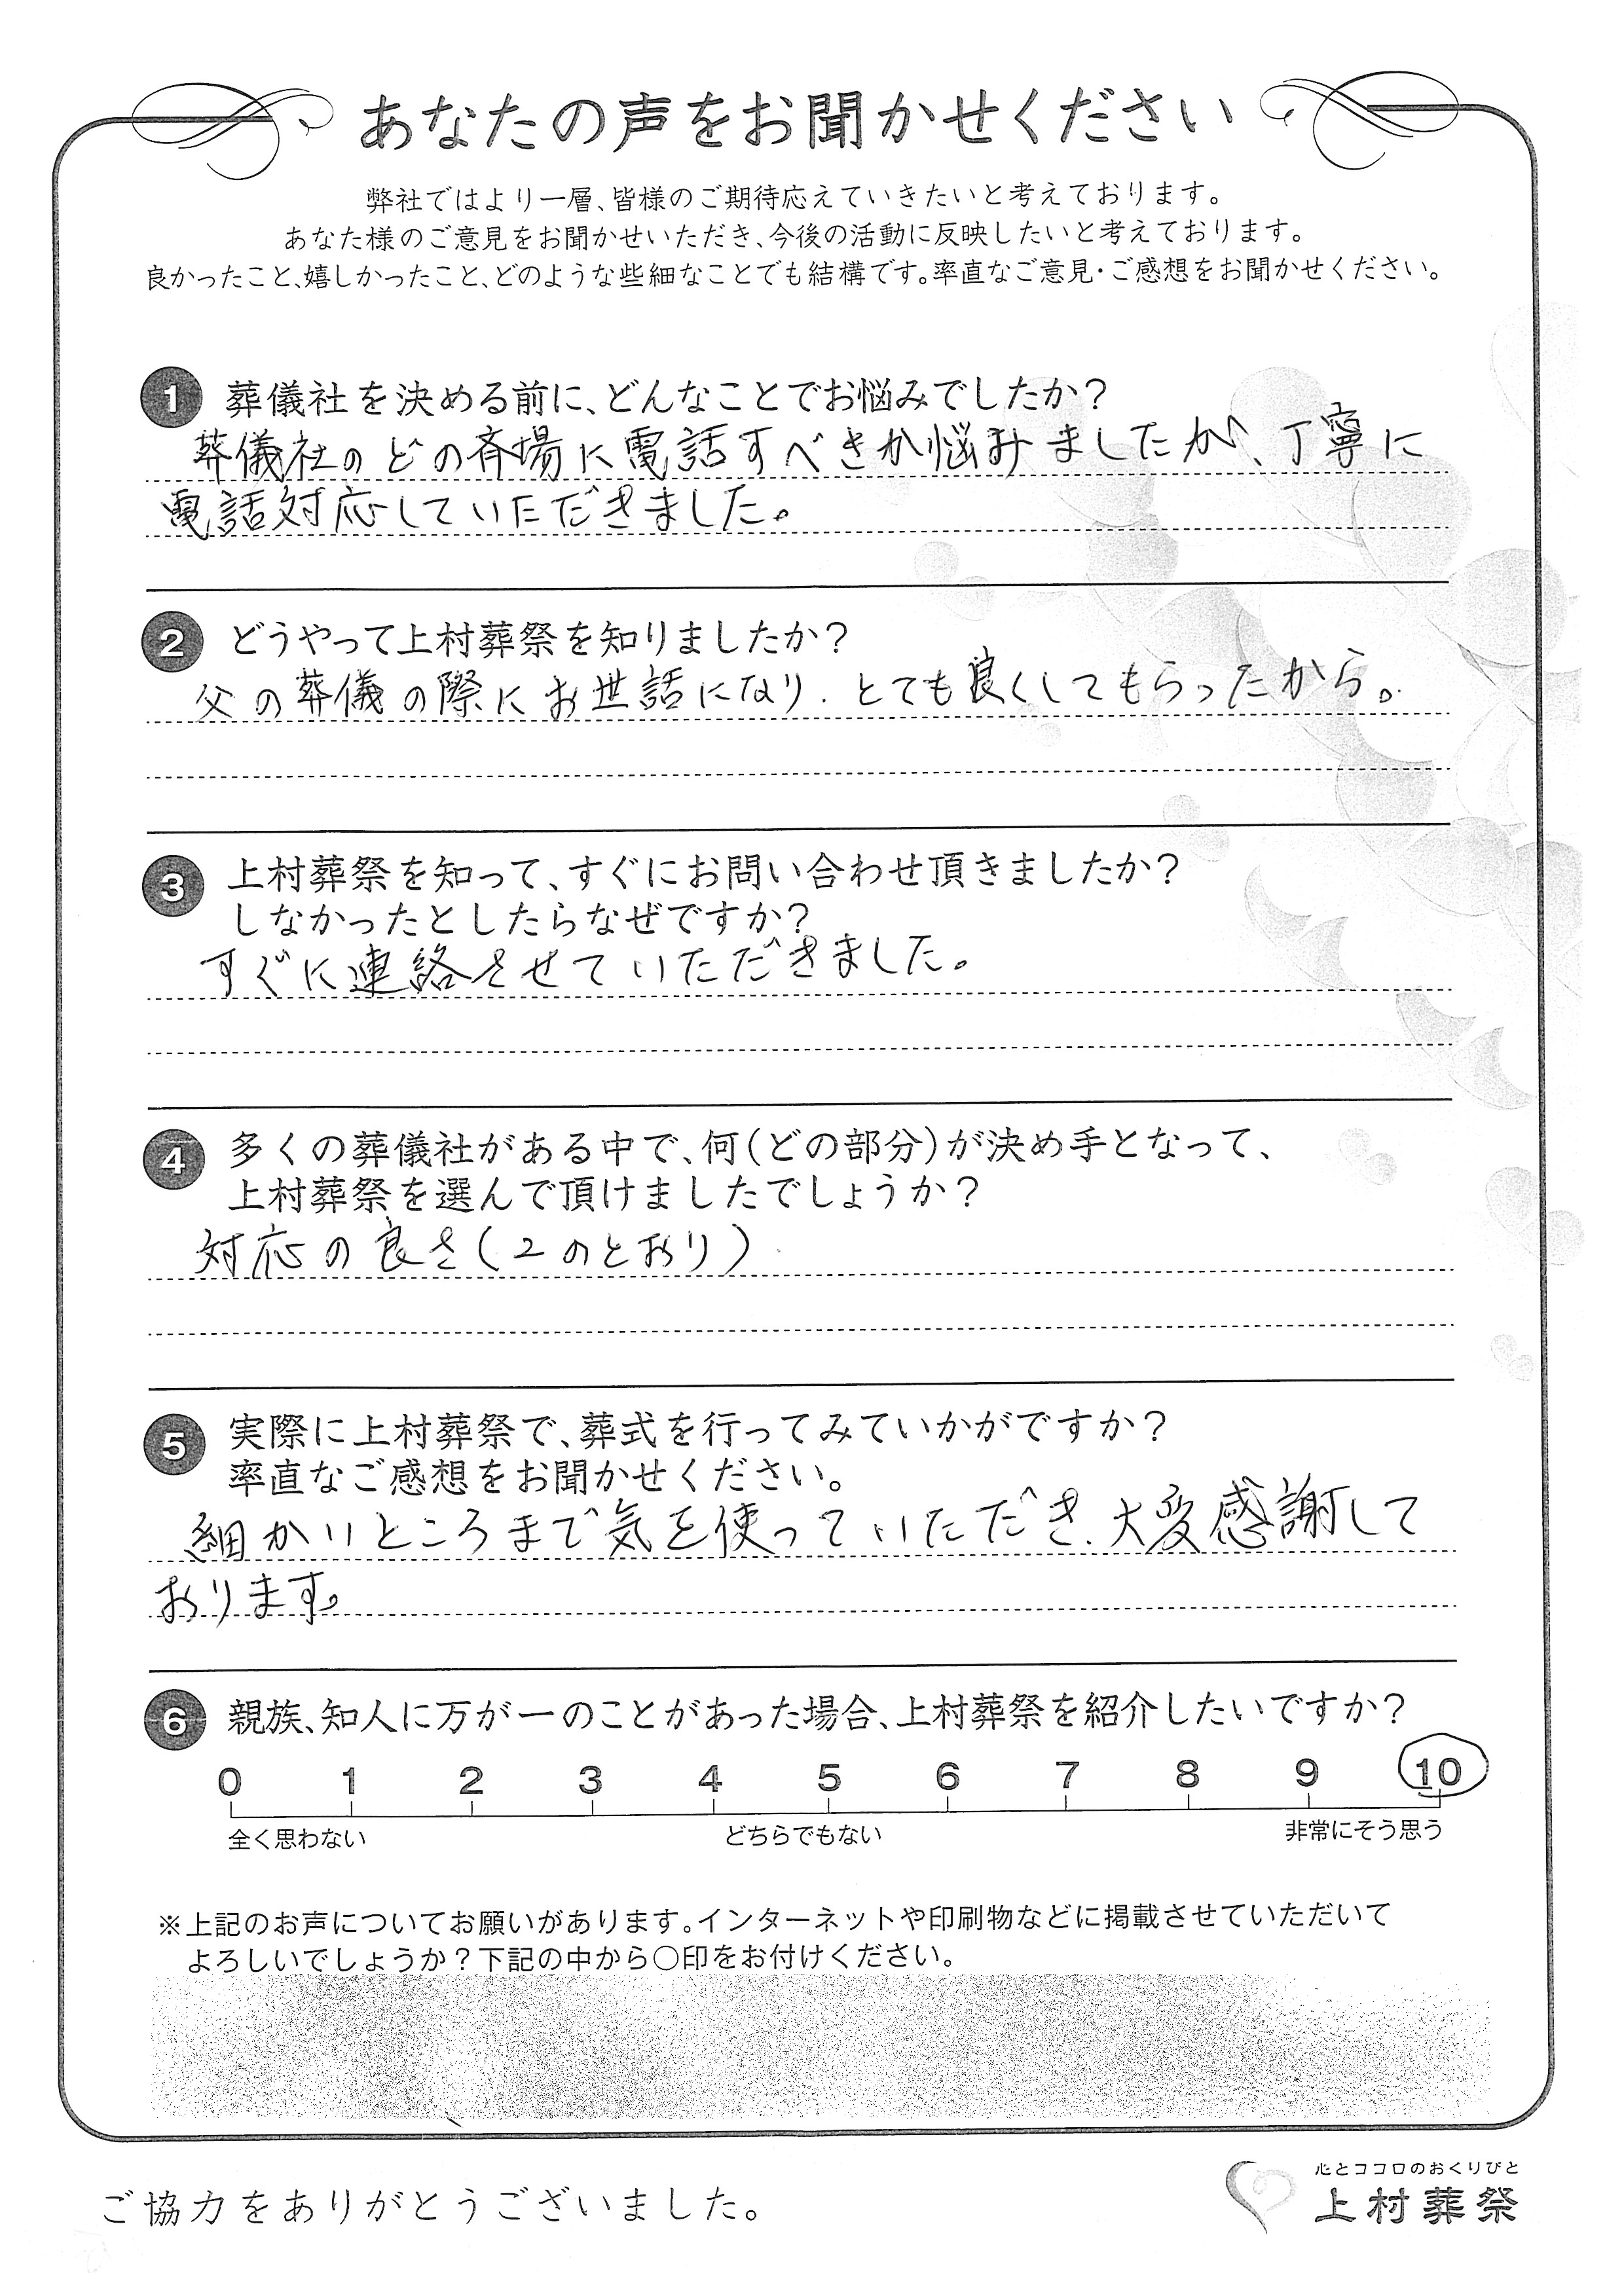 あなたの声をお聞かせください
弊社ではより一層、皆様のご期待応えていきたいと考えております。
あなた様のご意見をお聞かせいただき、今後の活動に反映したいと考えております。
良かったこと、嬉しかったこと、どのような些細なことでも結構です。率直なご意見・ご感想をお聞かせください。
1 葬儀社を決める前に、どんなことでお悩みでしたか?
葬儀社のどの斉場に電話すべきか悩みましたが、丁寧に
電話対応していただきました。
2 どうやって上村葬祭を知りましたか?
父の葬儀の際にお世話になり、とても良くしてもらったから。
3 上村葬祭を知って、すぐにお問い合わせ頂きましたか?
しなかったとしたらなぜですか?
すぐに連絡させていただきました。
4 多くの葬儀社がある中で、何(どの部分)が決め手となって、
上村葬祭を選んで頂けましたでしょうか?
対応の良さ(2のとおり)
5 実際に上村葬祭で、葬式を行ってみていかがですか?
率直なご感想をお聞かせください。
細かいところまで気を使っていただき、大変感謝して
おります。
6 親族、知人に万が一のことがあった場合、上村葬祭を紹介したいですか?
0 1 2 3 4 5 6 7 8 9 10
全く思わない どちらでもない 非常にそう思う
※上記のお声についてお願いがあります。インターネットや印刷物などに掲載させていただいて
よろしいでしょうか?下記の中から○印をお付けください。
ご協力をありがとうございました。
心とココロのおくりびと
上村葬祭